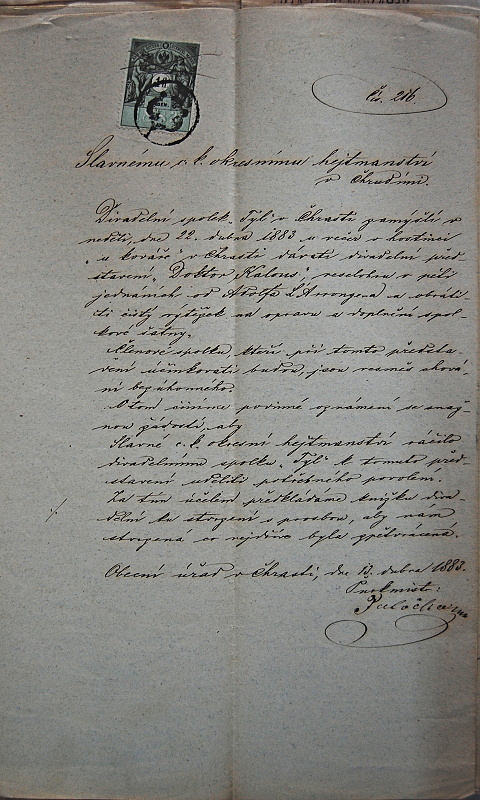 čís. 216.
Slavnému c. k. okresnímu hejtmanství
v Chrudimi.
Divadelní spolek „Tyl“ v Chrasti zamýšlí v
neděli, dne 22. dubna 1883 u večer v hostinci
„u kováře“ v Chrasti dávati divadelní před
stavení „Doktor Kalous“, veselohru v pěti
jednáních od Adolfa L'Arrongea a obráti-
ti čistý výtěžek na opravu a doplnění spol-
kové šatny.
Členové spolku, kteří při tomto předsta-
vení účinkovati budou, jsou vesměs chová-
ní bezúhonného.
O tom činíme povinné oznámení se snaž-
nou žádostí, aby
Slavné c. k. okresní hejtmanství ráčilo
divadelnímu spolku „Tyl“ k tomuto před-
stavení uděliti potřebného povolení.
Za tím účelem předkládáme knížku diva-
delní ku stvrzení s prosbou, aby nám
stvrzená co nejdříve byla zpět vrácená.
Obecní úřad v Chrasti, dne 13. dubna 1883.
Purkmistr: